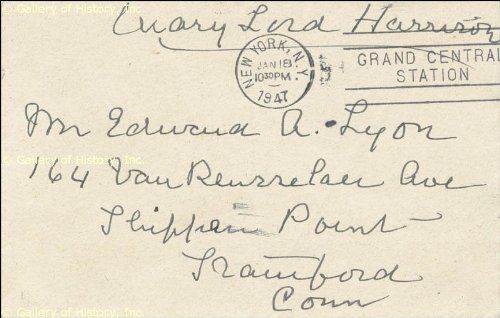 © Gallery of History, Inc.
Mary Lord Harrison
NEW YORK, N.Y.
JAN 18
1030 PM
1947
GRAND CENTRAL
STATION
© Gallery of History, Inc.
Mr Edward A. Lyon
164 Van Rensselaer Ave
Shippan Point
Stamford
Conn
© Gallery of History, Inc.